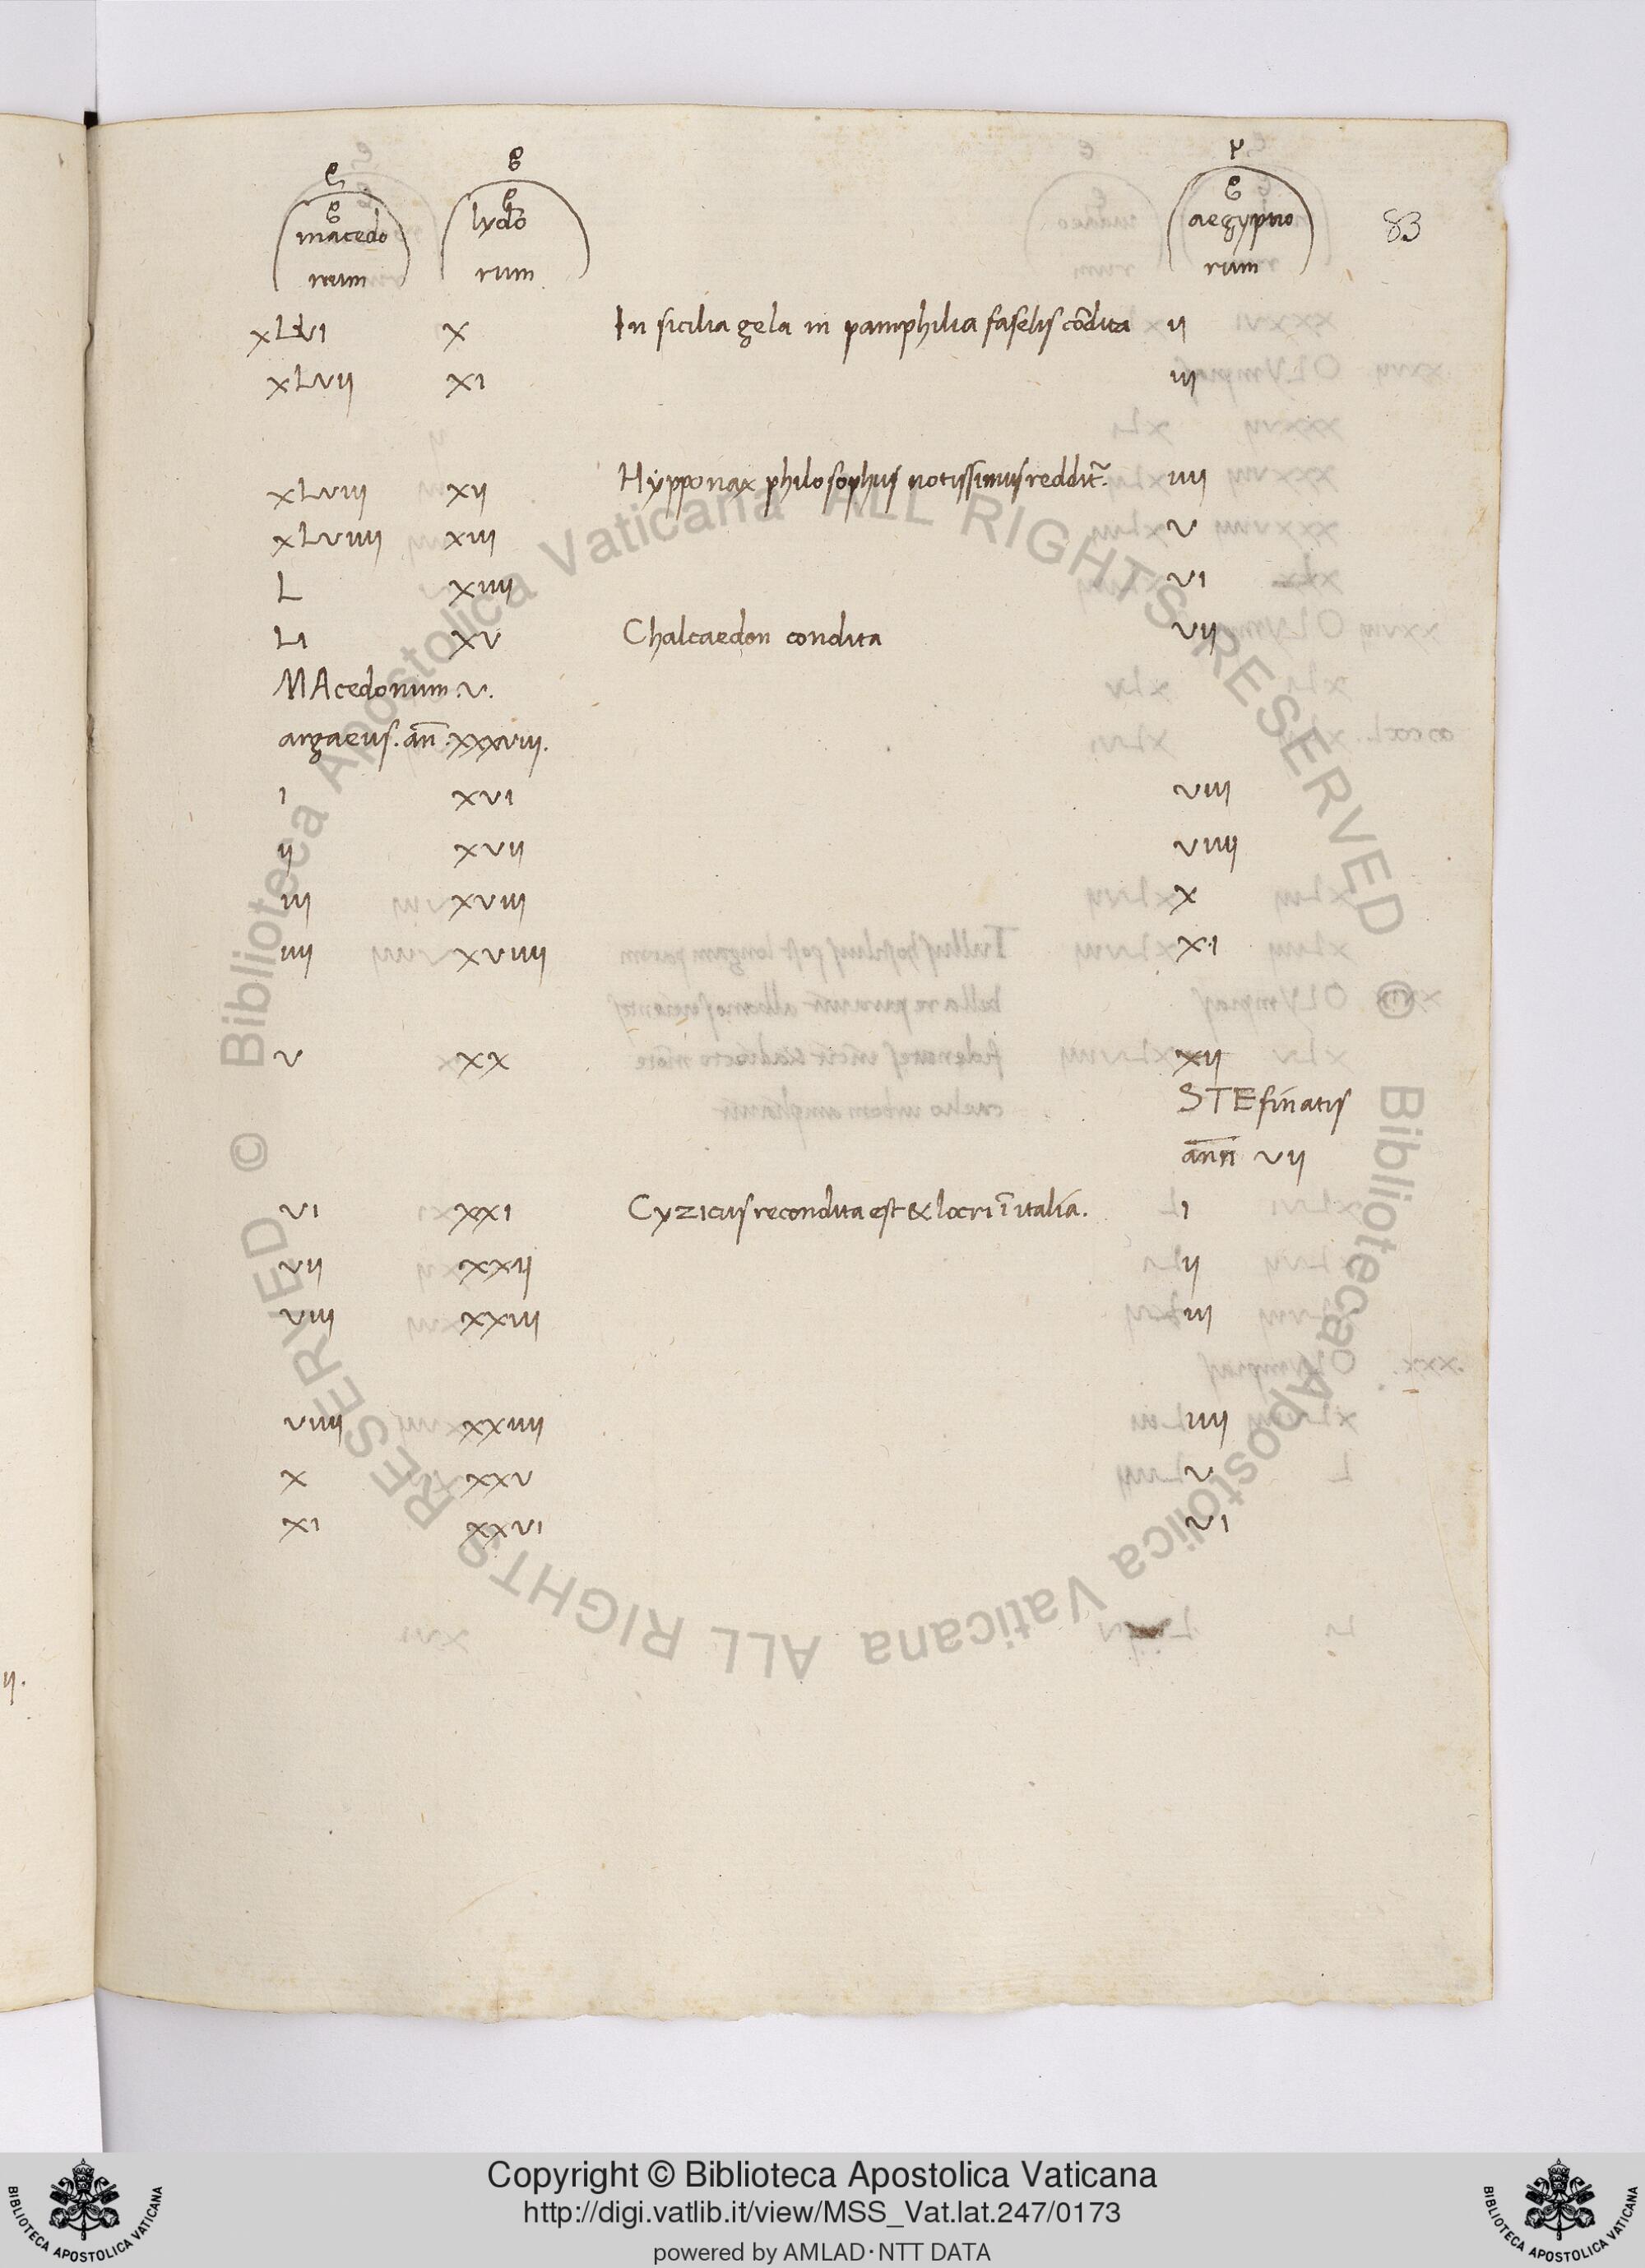 83
macedo lydo aegyptio
num rum rum
xLvi x In sicilia gela in pamphilia faselis cōdita ii
xLvii xi iii
xLviii xii Hypponax philosophus notissimus reddit̄. iiii
xLviiii xiii v
L xiiii vi
Li xv Chalcaedon condita vii
MAcedonum .v.
argaeus. an̄ .xxxviii.
i xvi viii
ii xvii viiii
iii xviii x
iiii xviiii xi
v xx xii
STEfinatis
an̄n̄ vii
vi xxi Cyzicus recondita est & locri ī italia. i
vii xxii ii
viii xxiii iii
viiii xxiiii iiii
x xxv v
xi xxvi vi
ii.
© Biblioteca Apostolica Vaticana ALL RIGHTS RESERVED
© Biblioteca Apostolica Vaticana ALL RIGHTS RESERVED
Copyright © Biblioteca Apostolica Vaticana
http://digi.vatlib.it/view/MSS_Vat.lat.247/0173
powered by AMLAD·NTT DATA
BIBLIOTECA APOSTOLICA VATICANA
BIBLIOTECA APOSTOLICA VATICANA